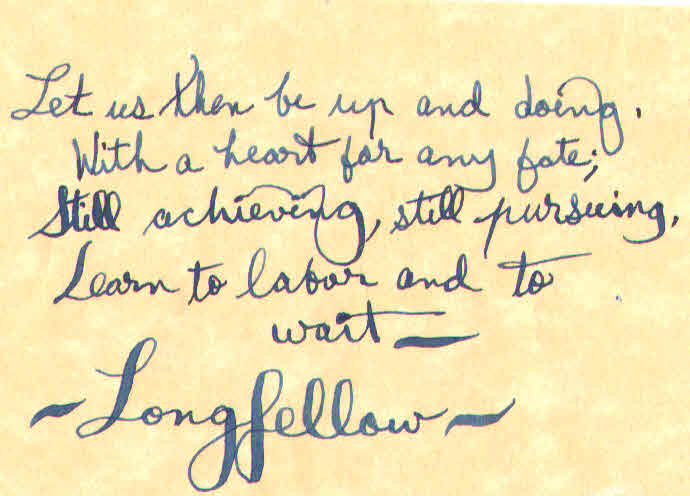 Let us then be up and doing,
With a heart for any fate;
Still achieving, still pursuing,
Learn to labor and to
wait —
~ Longfellow ~